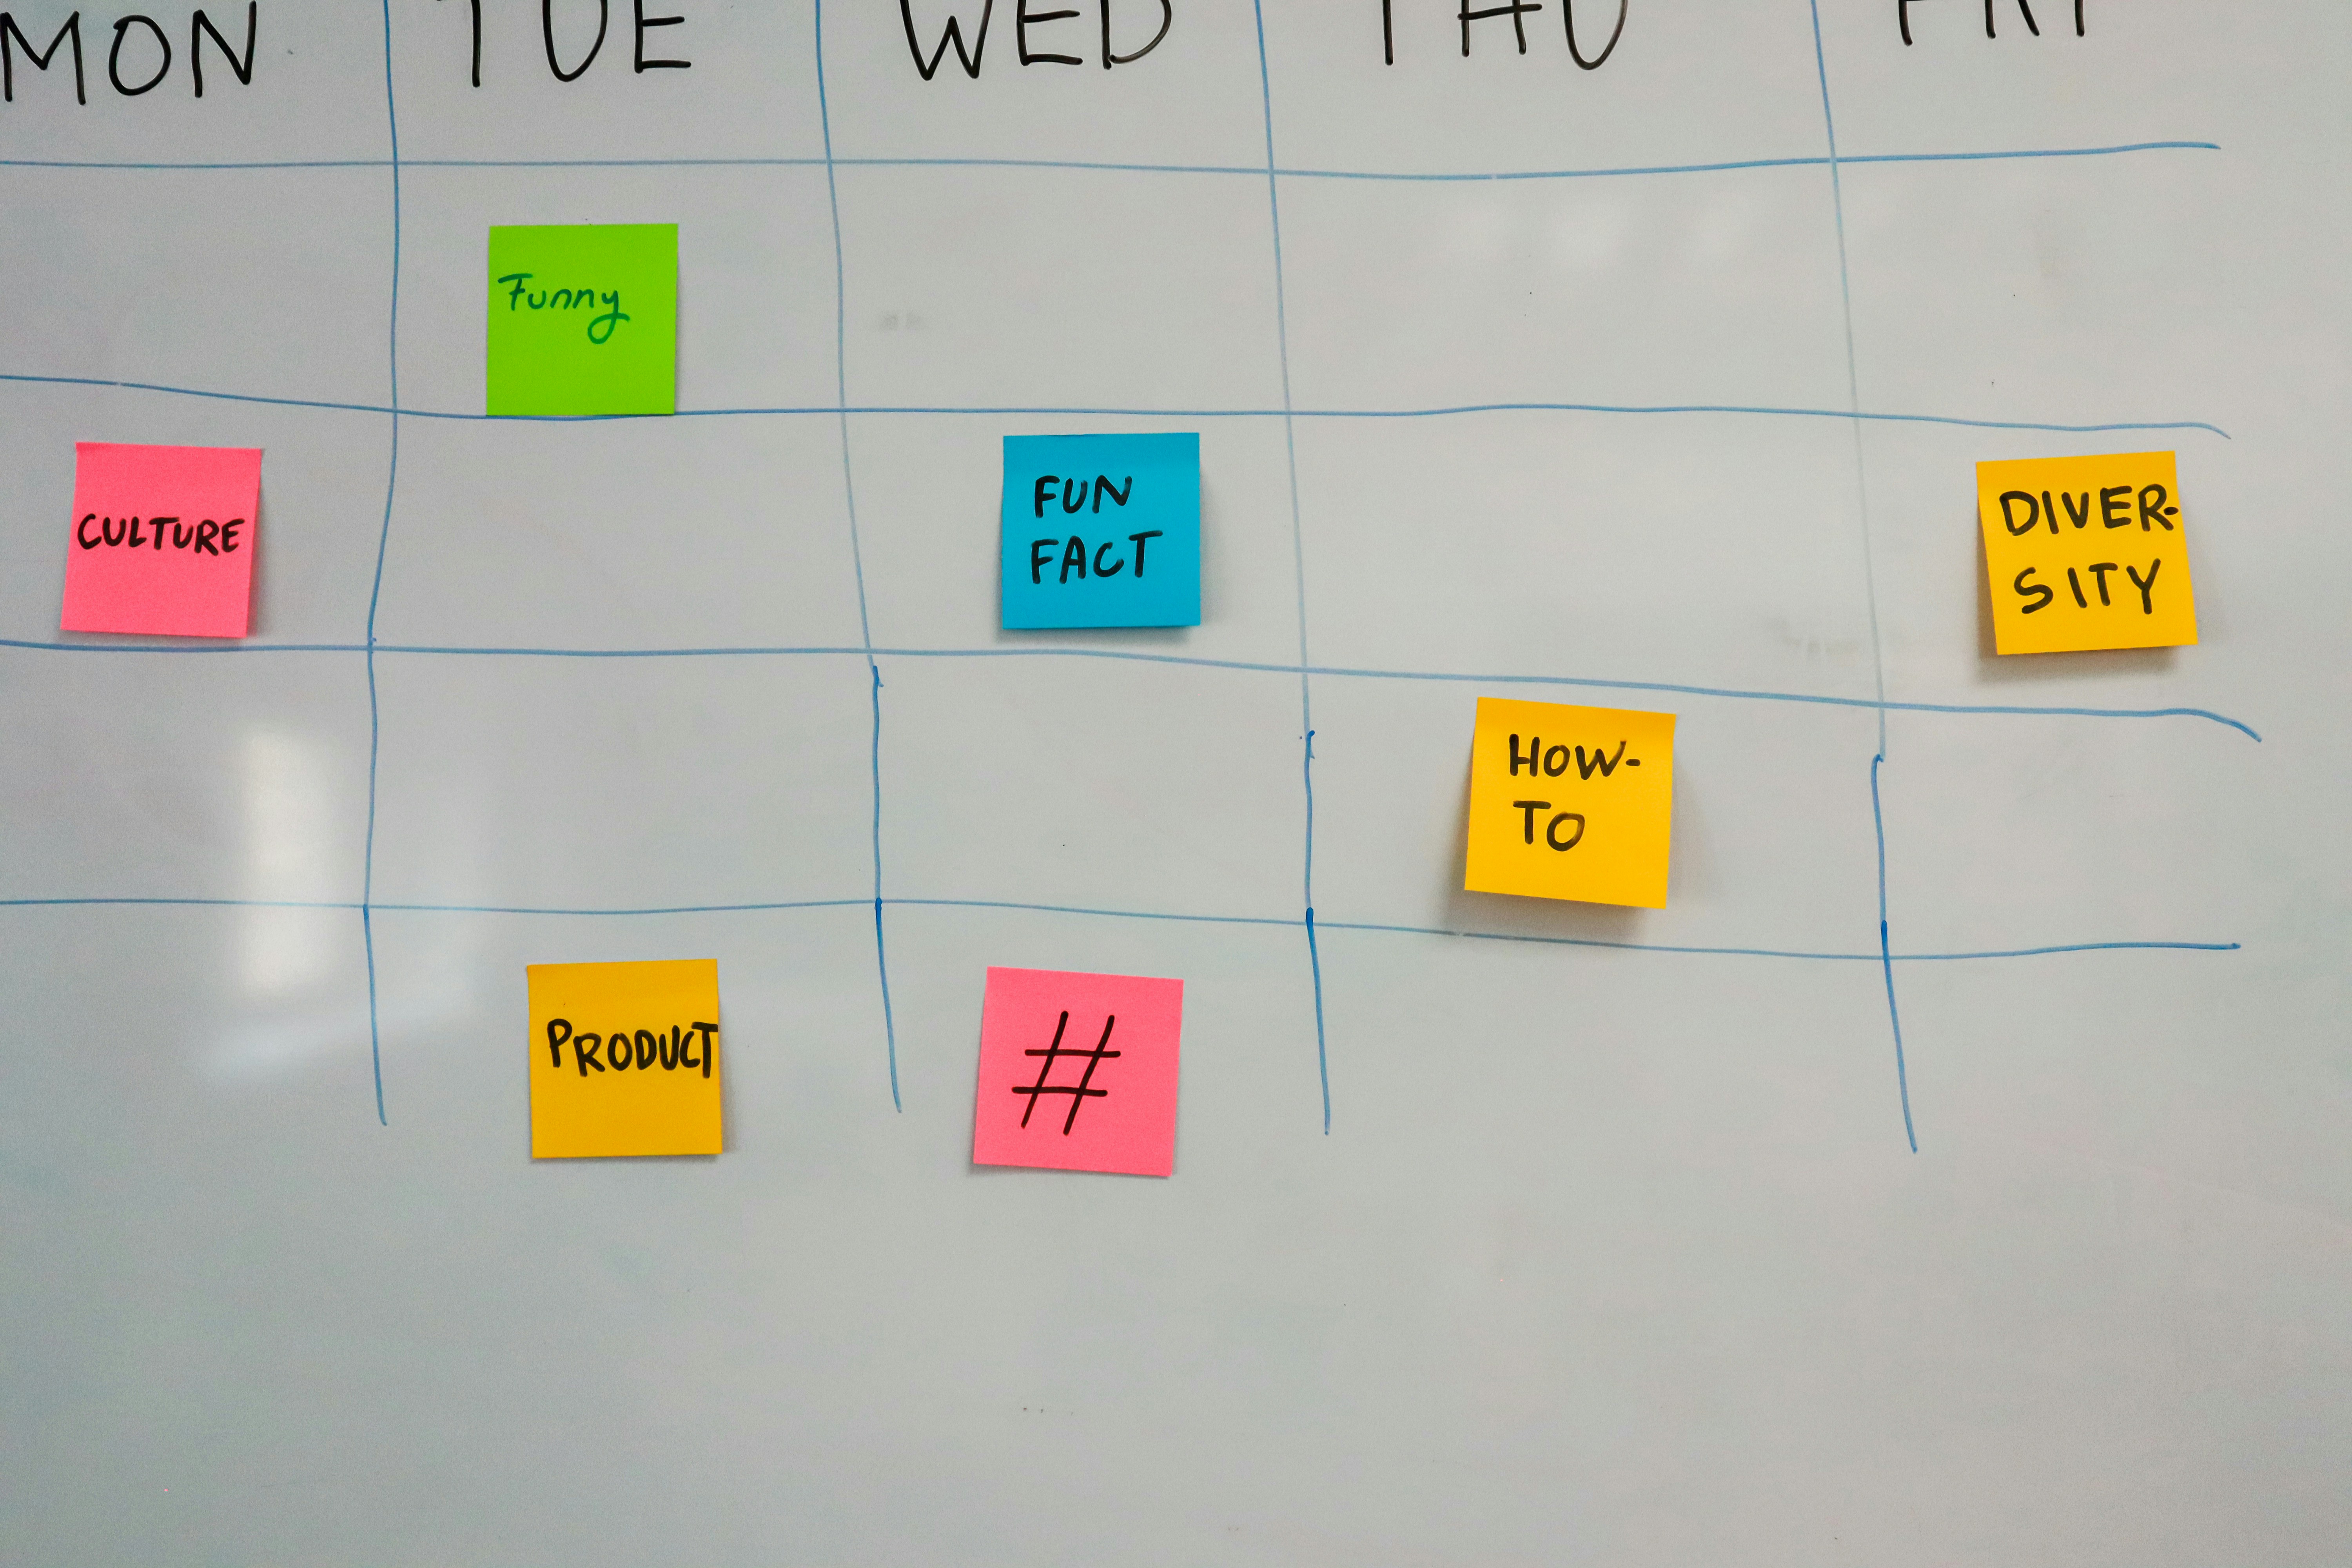 MON TUE WED THU FRI
Funny
CULTURE
FUN
FACT
DIVER-
SITY
HOW-
TO
PRODUCT
#